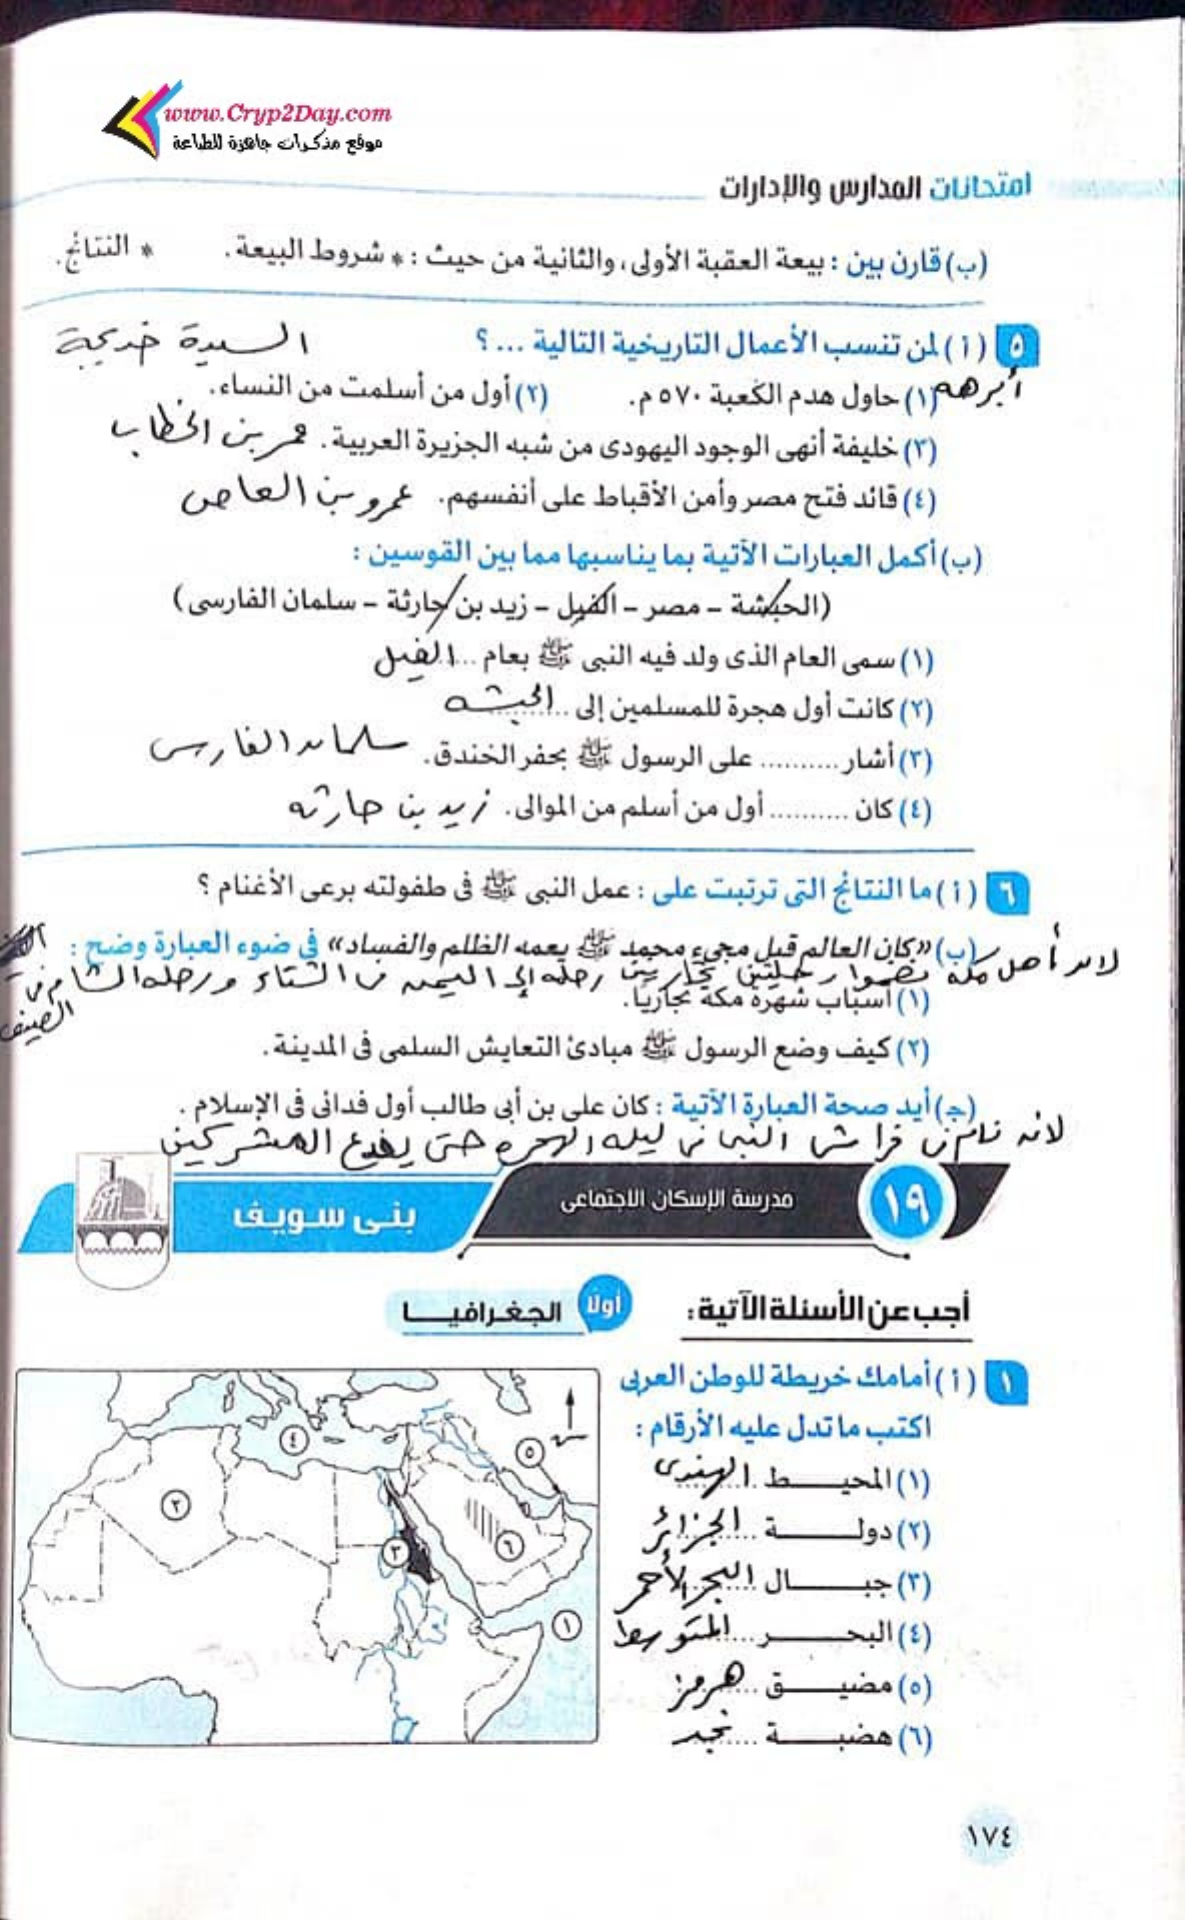 www.Cryp2Day.com
موقع مذكرات جاهزة للطباعة
امتحانات المدارس والإدارات
(ب) قارن بين : بيعة العقبة الأولى، والثانية من حيث : * شروط البيعة. * النتائج.
٥ (أ) لمن تنسب الأعمال التاريخية التالية ...؟ السيدة خديجة
أبرهه (١) حاول هدم الكعبة ٥٧٠ م. (٢) أول من أسلمت من النساء.
(٣) خليفة أنهى الوجود اليهودى من شبه الجزيرة العربية. عمر بن الخطاب
(٤) قائد فتح مصر وأمن الأقباط على أنفسهم. عمرو بن العاص
(ب) أكمل العبارات الآتية بما يناسبها مما بين القوسين :
(الحبشة – مصر – الفيل – زيد بن حارثة – سلمان الفارسى)
(١) سمى العام الذى ولد فيه النبى ﷺ بعام ... الفيل
(٢) كانت أول هجرة للمسلمين إلى .......... الحبشه
(٣) أشار .......... على الرسول ﷺ بحفر الخندق. سلمان الفارسى
(٤) كان .......... أول من أسلم من الموالى. زيد بن حارثه
٦ (أ) ما النتائج التى ترتبت على : عمل النبى ﷺ فى طفولته برعى الأغنام ؟
(ب) «كان العالم قبل مجىء محمد ﷺ يعمه الظلم والفساد» فى ضوء العبارة وضح :
لان أهل مكة نظموا رحلتين تجاريتين رحله إلى اليمن فى الشتاء ورحله الشام فى الصيف
(١) أسباب شهرة مكة تجاريًا.
(٢) كيف وضع الرسول ﷺ مبادئ التعايش السلمى فى المدينة.
(جـ) أيد صحة العبارة الآتية : كان على بن أبى طالب أول فدائى فى الإسلام.
لانه نام فى فراش النبى فى ليله الهجره حتى يخدع المشركين
١٩ مدرسة الإسكان الاجتماعى بنى سويف
أجب عن الأسئلة الآتية:
أولا الجغرافيا
١ (أ) أمامك خريطة للوطن العربى
اكتب ما تدل عليه الأرقام :
(١) المحيط الهندى
(٢) دولة الجزائر
(٣) جبال البحر الأحمر
(٤) البحر المتوسط
(٥) مضيق هرمز
(٦) هضبة نجد
٤
٥
٢
٣
٦
١
١٧٤